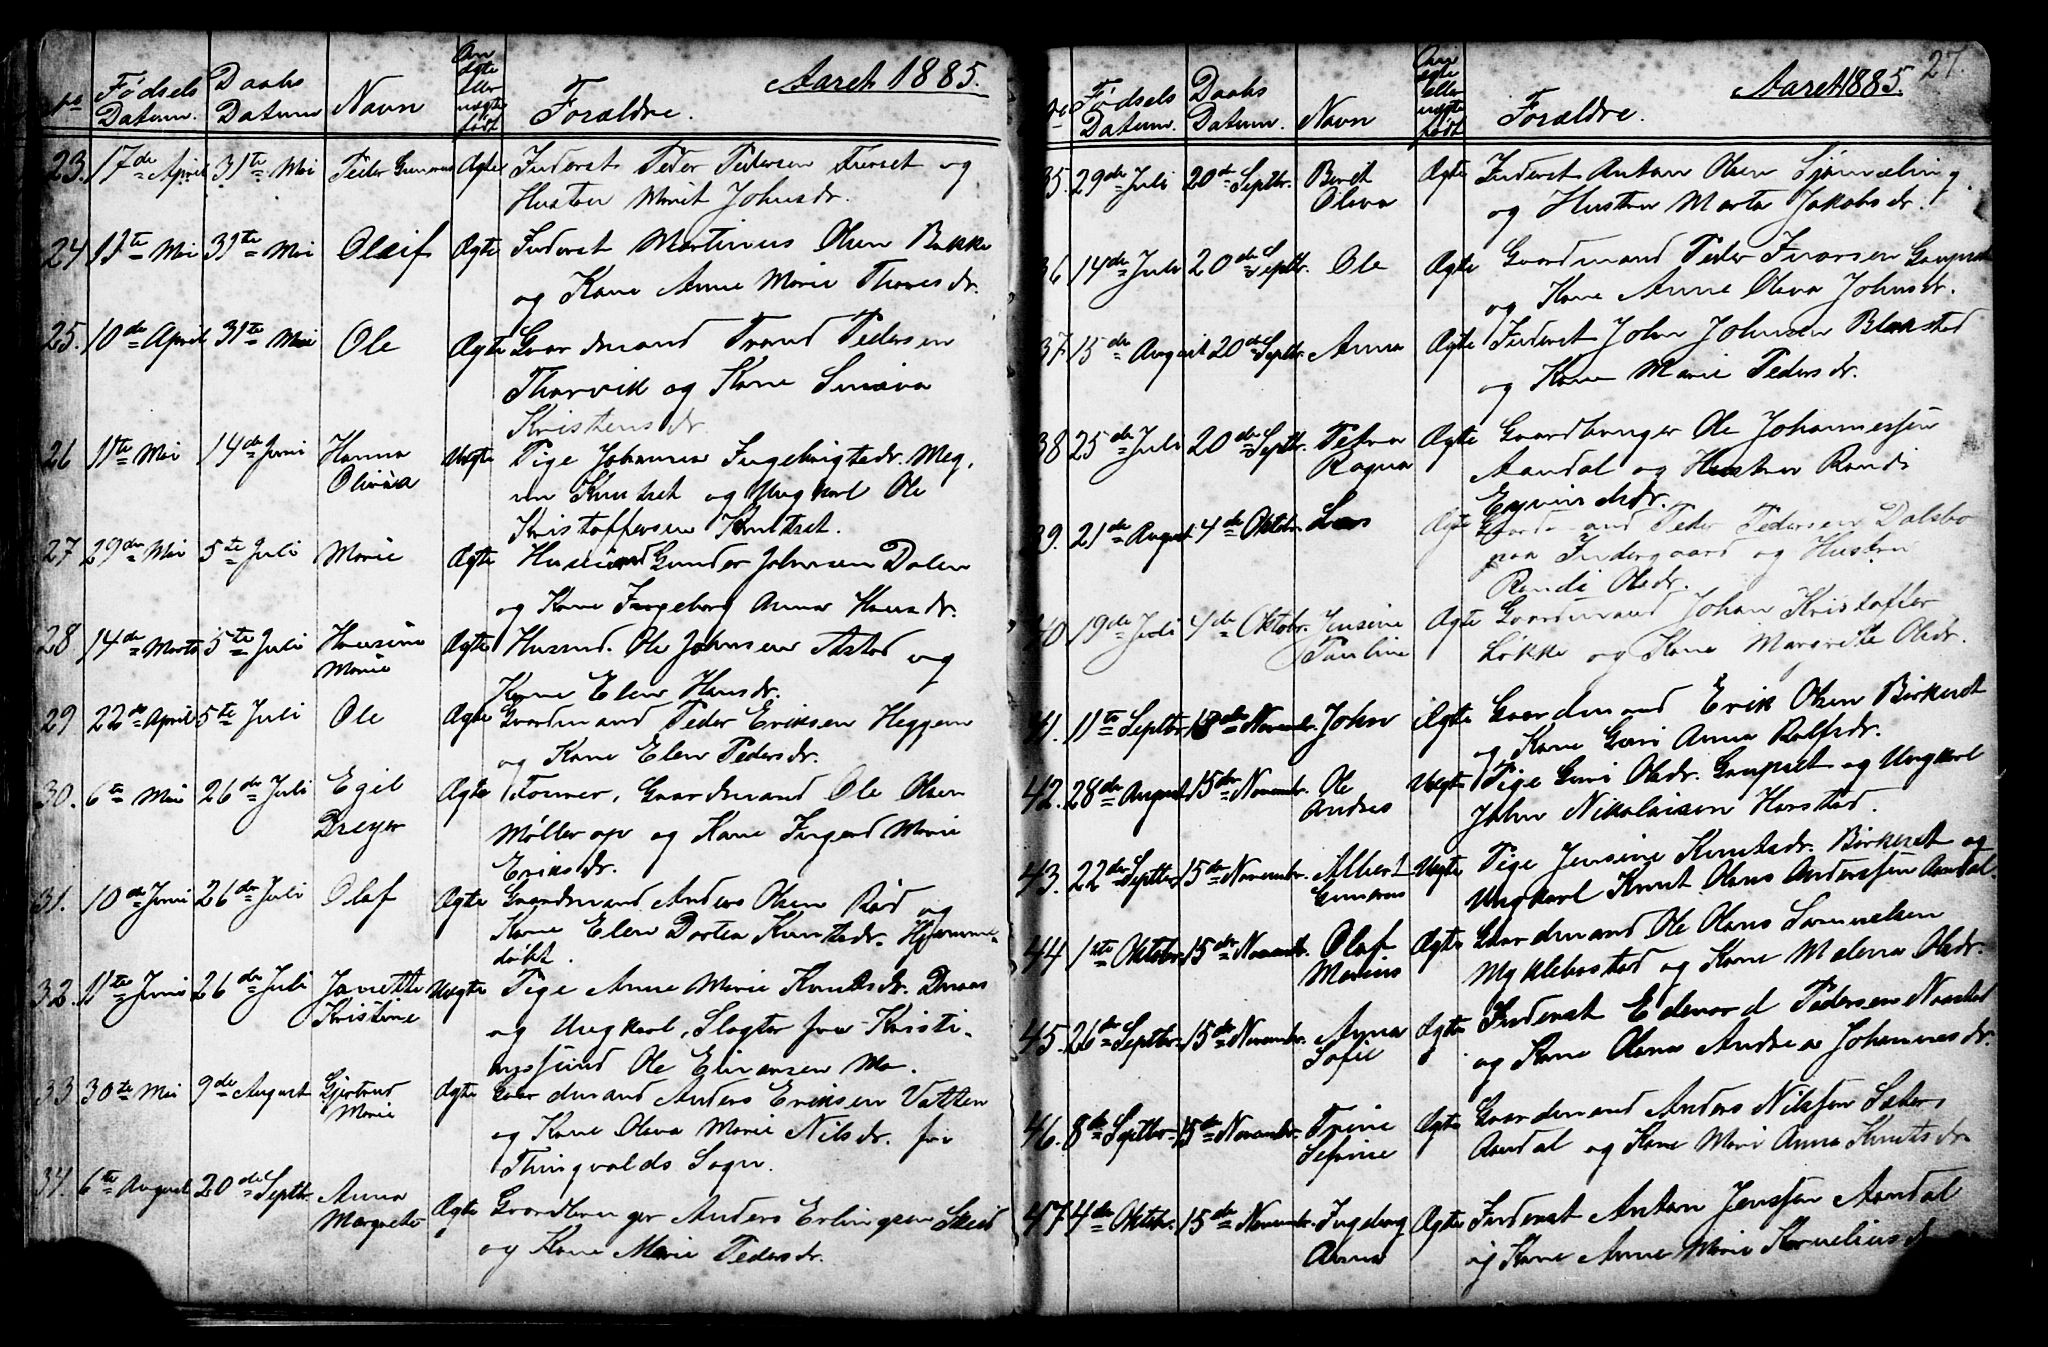 Aaret 1885.
No Fødsels Datum. Daabs Datum Navn Om ægte eller uægte født Forældre.
23. 17de April 31te Mai Peder Gunerius Ægte Inderst Peder Pedersen Furset og
Hustru Marit Johnsdr.
24 11te Mai 31te Mai Oluf Ægte Inderst Martinus Olsen Bakke
og Kone Anne Marie Thoresdr.
25. 10de April 31te Mai Ole Ægte Gaardmand Trond Pedersen
Thorvik og Kone
Kristensdr
26 11te Mai 14de Juni Hanna Uægte Pige Johanna Ingebrigtsdr. Meg,
Olivia Knutset og Ungkarl Ole
Kristoffersen Knutset.
27 29de Mai 5te Juli Marie Ægte Husmand Gunder Johnsen Dalen
og Kone Ingeborg Anna Hansdr.
28 14de Marts 5te Juli Hansine Ægte Husmd. Ole Johnsen Astad og
Marie
Kone Elen Hansdr.
29 22de April 5te Juli Ole Ægte Gaardmand Peder Eriksen Heggem
og Kone Elen Pedersdr.
30. 6te Mai 26de Juli Egil Ægte Gaardmand Ole Olsen
Dreyer Møllerop og Kone Ingerd Marie
Eriksdr.
31. 10de Juni 26de Juli Olaf Ægte Gaardmand Anders Olsen Rød og
Kone Elen Dortea Knutsdr. Hjemme-
døbt.
32. 11te Juni 26de Juli Janette Uægte Pige Anne Marie Knutsdr.
Kristine og Ungkarl, Slagter fra Kristi-
anssund Ole Elinersen Mo.
33. 30te Mai 9de August Gjertrud Ægte Gaardmand Anders Eriksen Vatten
Marie og Kone Olava Marie Nilsdr. fra
Thingvolds Sogn.
34. 6te August 20de Septbr. Anna Ægte Gaardbruger Anders Erlingsen Skeid
Margrete
og Kone Marie Pedersdr.
27.
Aaret 1885.
No Fødsels Datum. Daabs Datum. Navn Om ægte eller uægte født Forældre.
35. 29de Juli 20de Septbr. Beret Ægte Inderst Anton Olsen Sjømæling
Olava og Hustru Marta Jakobsdr.
36 14de Juli 20de Septbr. Ole Ægte Gaardmand Peder Iversen Gaupset
og Kone Anne Olava Johnsdr.
37. 15de August 20de Septbr. Anna Ægte Inderst John Johnsen Blakstad
og Kone Marie Pedersdr.
38 25de Juli 20de Septbr. Petra Ægte Gaardbruger Ole Johannessen
Ragna Aandal og Hustru Randi
Eyvindsdr.
39. 21de August 4de Oktobr. Lars Ægte Gaardmand Peder Pedersen Dalsbø
paa Indergaard og Hustru
Randi Olsdr.
40 19de Juli 4de Oktobr. Jensine Ægte Gaardmand Johan Kristoffer
Pauline Løkke og Kone Margrethe Olsdr.
41. 11te Septbr. 15de Novembr. John Ægte Gaardmand Erik Olsen Birkeset
og Kone Guri Anna Rolfsdr.
42. 28de August 15de Novembr. Ole Uægte Pige Guri Olsdr. Gaupset og Ungkarl
Andreas John Nikolaisen Harstad.
43. 22de Septbr. 15de Novembr. Albert Uægte Pige Jensine Knutsdr. Birkeset og
Gunerius Ungkarl Knut Olaus Anderssen Aandal.
44 1ste Oktobr. 15de Novembr. Olaf Ægte Gaardmand Ole Olaus Samuelsen
Marius Myklebostad og Kone Malena Olsdr.
45. 26de Septbr. 15de Novembr. Anna Ægte Inderst Edvard Pedersen Naastad
Sofie og Kone Olava Andrea Johannesdr.
46. 8de Septbr. 15de Novembr. Trine Ægte Gaardmand Anders Nilssen Sæter
Serine Aandal og Kone Mari Anna Knutsdr.
47 4de Oktobr. 15de Novembr. Ingeborg Ægte Inderst Anton Jenssen Aandal
Anna og Kone Anne Marie Korneliusdr